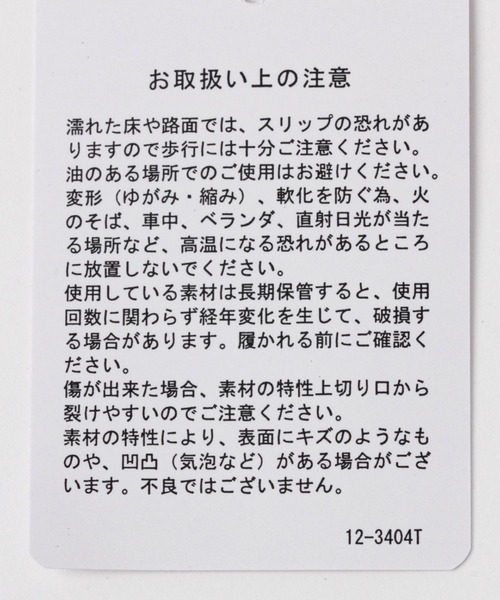 お取扱い上の注意
濡れた床や路面では、スリップの恐れがあ
りますので歩行には十分ご注意ください。
油のある場所でのご使用はお避けください。
変形（ゆがみ・縮み）、軟化を防ぐ為、火
のそば、車中、ベランダ、直射日光が当た
る場所など、高温になる恐れがあるところ
に放置しないでください。
使用している素材は長期保管すると、使用
回数に関わらず経年変化を生じて、破損す
る場合があります。履かれる前にご確認く
ださい。
傷が出来た場合、素材の特性上切り口から
裂けやすいのでご注意ください。
素材の特性により、表面にキズのようなも
のや、凹凸（気泡など）がある場合がござ
います。不良ではございません。
12-3404T